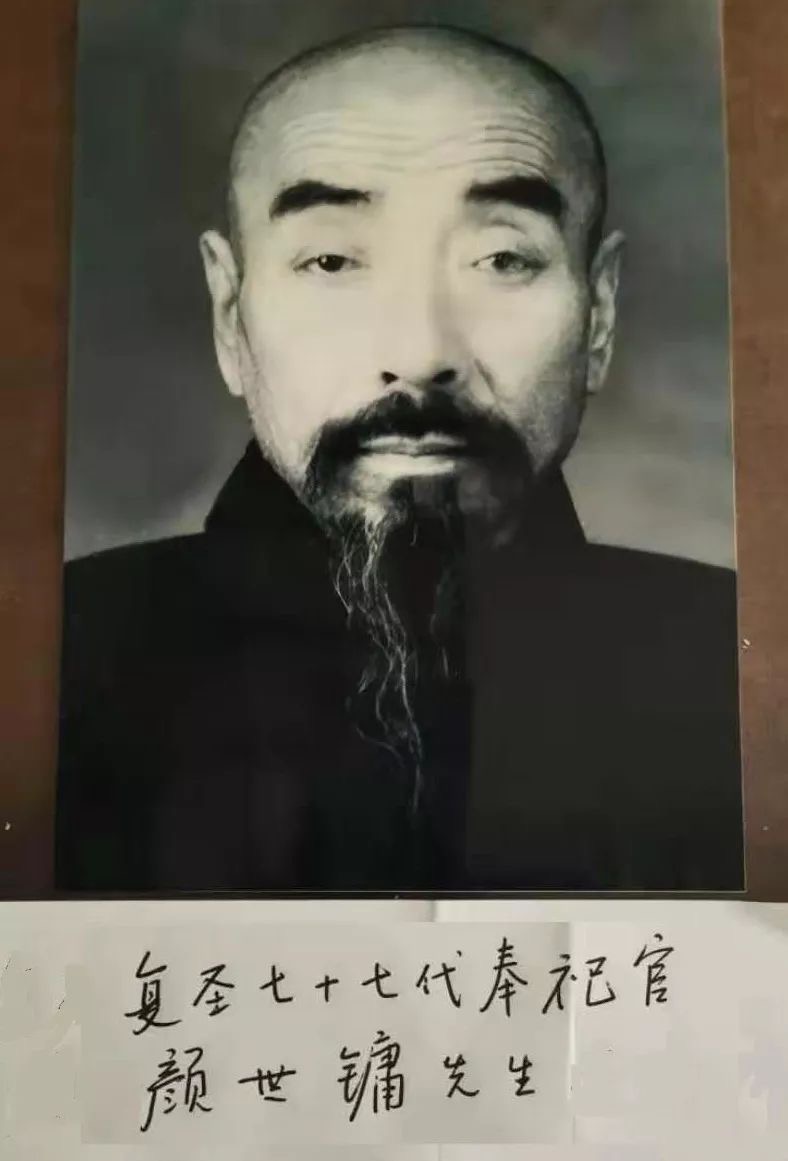 复圣七十七代奉祀官
颜世镛先生